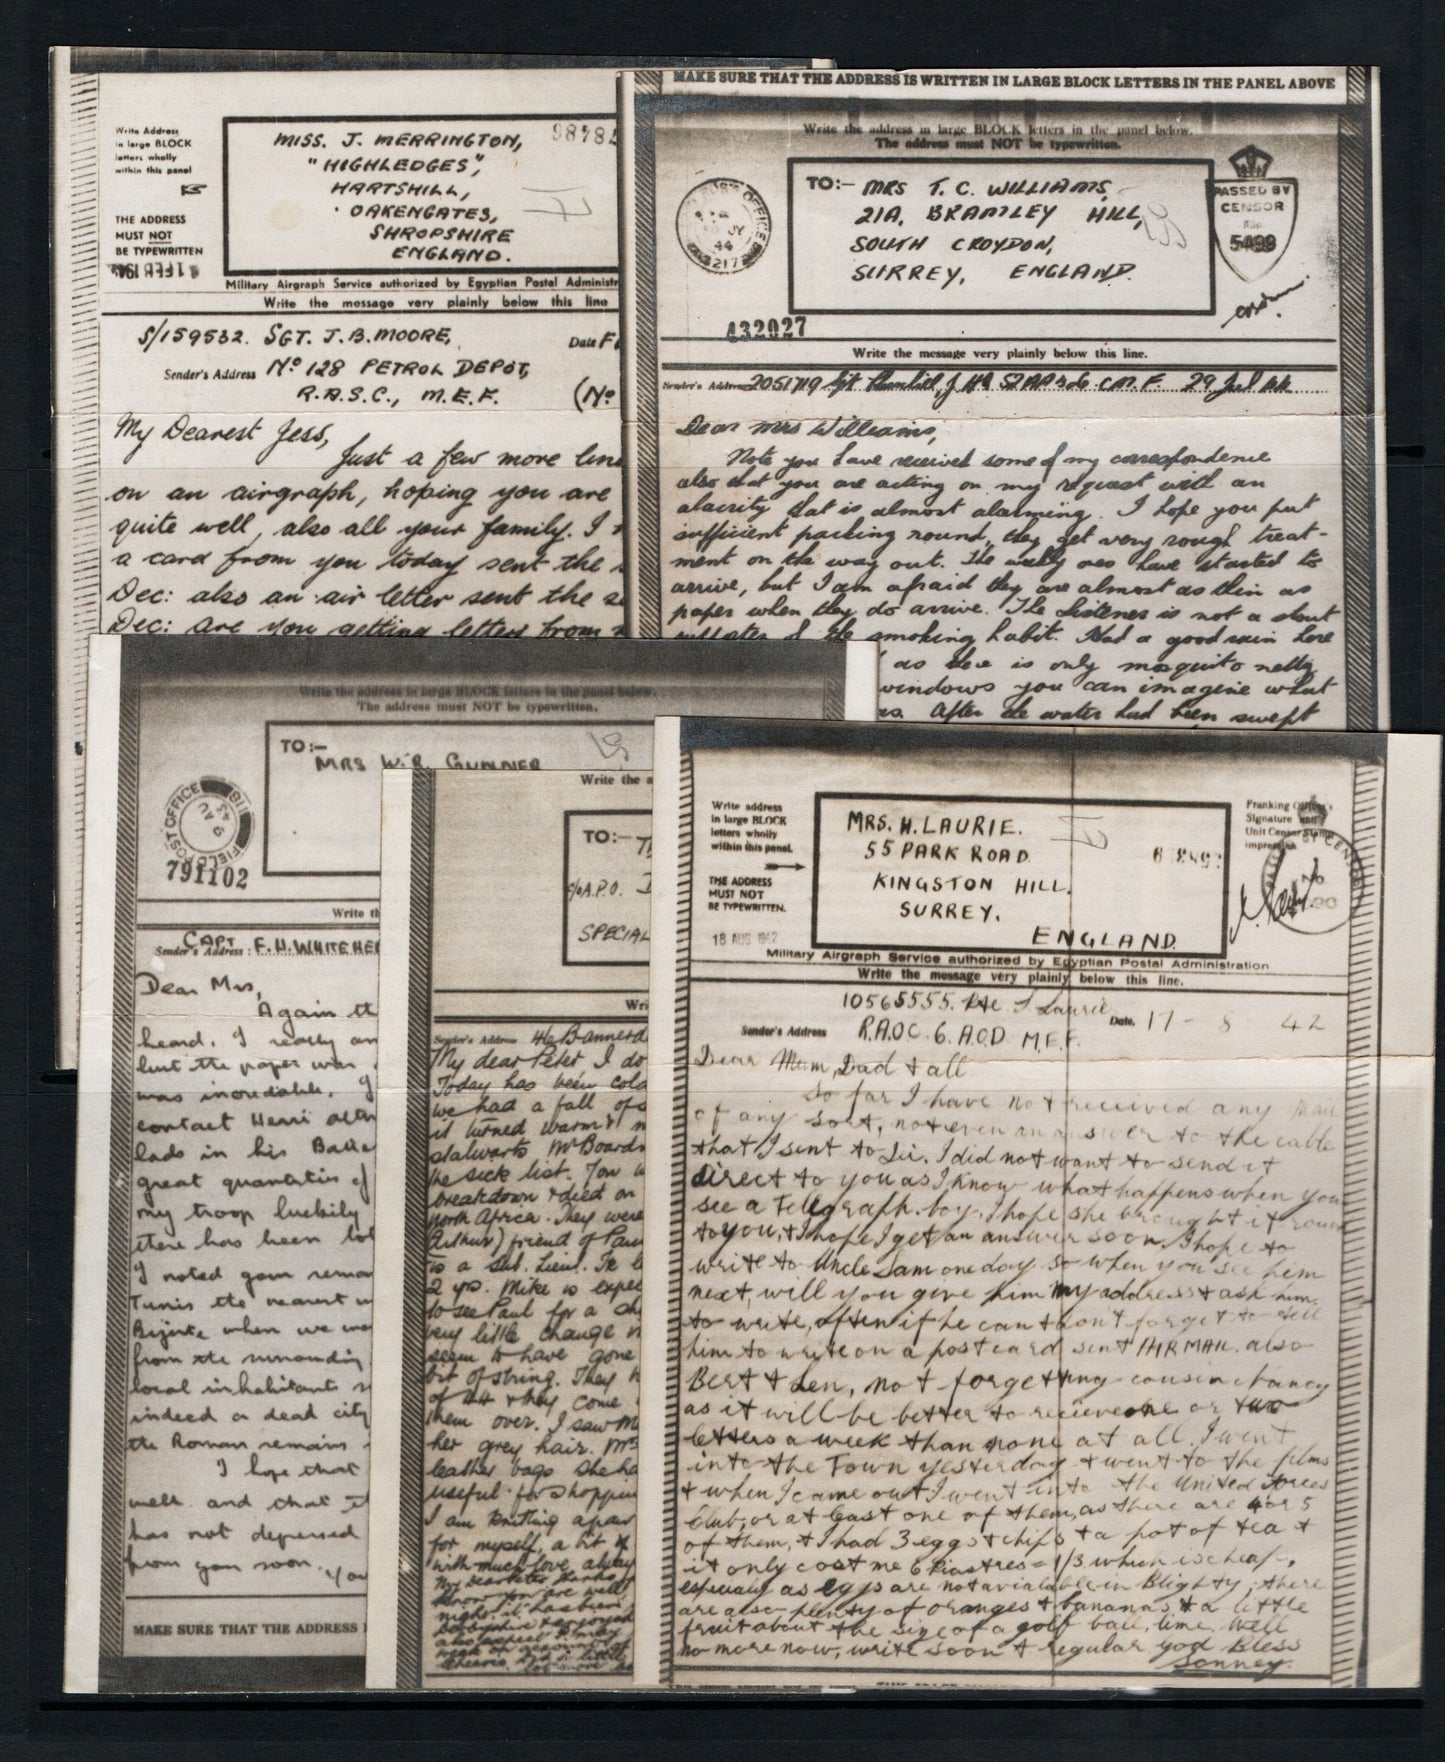 Write Address
in large BLOCK
letters wholly
within this panel
THE ADDRESS
MUST NOT
BE TYPEWRITTEN
MISS. J. MERRINGTON,
"HIGHLEDGES",
HARTSHILL,
OAKENGATES,
SHROPSHIRE
ENGLAND.
Military Airgraph Service authorized by Egyptian Postal Administr
Write the message very plainly below this line
S/159532. SGT. J.B. MOORE,
Date F
Sender's Address No 128 PETROL DEPOT,
R.A.S.C., M.E.F. (No
My Dearest Jess,
Just a few more line
on an airgraph, hoping you are
quite well, also all your family. I
a card from you today sent the
Dec: also an air letter sent the
Dec: are you getting letters from
MAKE SURE THAT THE ADDRESS IS WRITTEN IN LARGE BLOCK LETTERS IN THE PANEL ABOVE
Write the address in large BLOCK letters in the panel below.
The address must NOT be typewritten.
TO:- MRS T. C. WILLIAMS,
21A, BRAMLEY HILL,
SOUTH CROYDON,
SURREY, ENGLAND.
PASSED BY
CENSOR
5499
44
217
432027
Write the message very plainly below this line.
Sender's Address 2051719 Sgt
C.M.F. 29 Jul 44
Dear Mrs Williams,
Note you have received some of my correspondence
also that you are acting on my request with an
alacrity that is almost alarming. I hope you put
sufficient packing round, they get very rough treat-
ment on the way out. The weekly ones have started to
arrive, but I am afraid they are almost as thin as
paper when they do arrive. The Listener is not a stout
of the smoking habit. Had a good rain here
as there is only mosquito netting
windows you can imagine what
After the water had been swept
Write the address in large BLOCK letters in the panel below.
The address must NOT be typewritten.
TO:-
MRS W.R. GUNNER
FIELD POST OFFICE
791102
Write th
CAPT
Sender's Address: F. H. WHITEHE
Dear Mrs,
Again th
heard. I really am
but the paper was
was incredible. I
contact Henri
lads in his Batte
great quantities of
my troop luckily
there has been lot
I noted your remar
Tunis the nearest
Bizerta when we
from the surrounding
local inhabitants
indeed a dead city
the Roman remains
I hope that
well and that it
has not depressed
from you soon. You
MAKE SURE THAT THE ADDRESS
Write the a
TO:-
c/o A.P.O.
SPECIAL
Wri
Sender's Address
My dear Peter I do
Today has been cold
we had a fall of
it turned warm &
stalwarts Mr Boards
the sick list. You
breakdown & died on
North Africa. They were
Arthur) friend of Paul
is a Sub. Lieut.
2 yrs. Mike is expec
to see Paul for a
very little change
seem to have gone
bit of string. They
of & they come
them over. I saw
her grey hair. Mrs
leather bags she ha
useful for shoppin
I am knitting a pair
for myself, a bit of
with much love always
know you are well
Write address
in large BLOCK
letters wholly
within this panel.
THE ADDRESS
MUST NOT
BE TYPEWRITTEN.
18 AUG 1942
MRS. H. LAURIE.
55 PARK ROAD
KINGSTON HILL.
SURREY.
ENGLAND.
Franking Officer's
Signature and
Unit Censor Stamp
impression
Military Airgraph Service authorized by Egyptian Postal Administration
Write the message very plainly below this line.
10565555. Pte Laurie
Date. 17 - 8 42
Sender's Address R.A.O.C. 6. A.O.D M.E.F.
Dear Mum, Dad & all
So far I have not received any mail
of any sort, not even an answer to the cable
that I sent to Lii. I did not want to send it
direct to you as I know what happens when you
see a Telegraph boy, I hope she brought it round
to you, & I hope I get an answer soon. I hope to
write to Uncle Sam one day so when you see him
next, will you give him my address & ask him
to write, often if he can & don't forget to tell
him to write on a postcard sent AIR MAIL. also
Bert & Len, not forgetting cousin
as it will be better to recieve one or two
letters a week than none at all. I went
into the Town yesterday & went to the films
& when I came out I went into the United Forces
Club, or at least one of them, as there are 4 or 5
of them, & I had 3 eggs & chips & a pot of tea &
it only cost me 6 Piastres = 1/3 which is cheap,
especially as eggs are not avialable in Blighty, there
are also plenty of oranges & bananas & a little
fruit about the size of a golf ball, lime. Well
no more now, write soon & regular God Bless
Sonney.